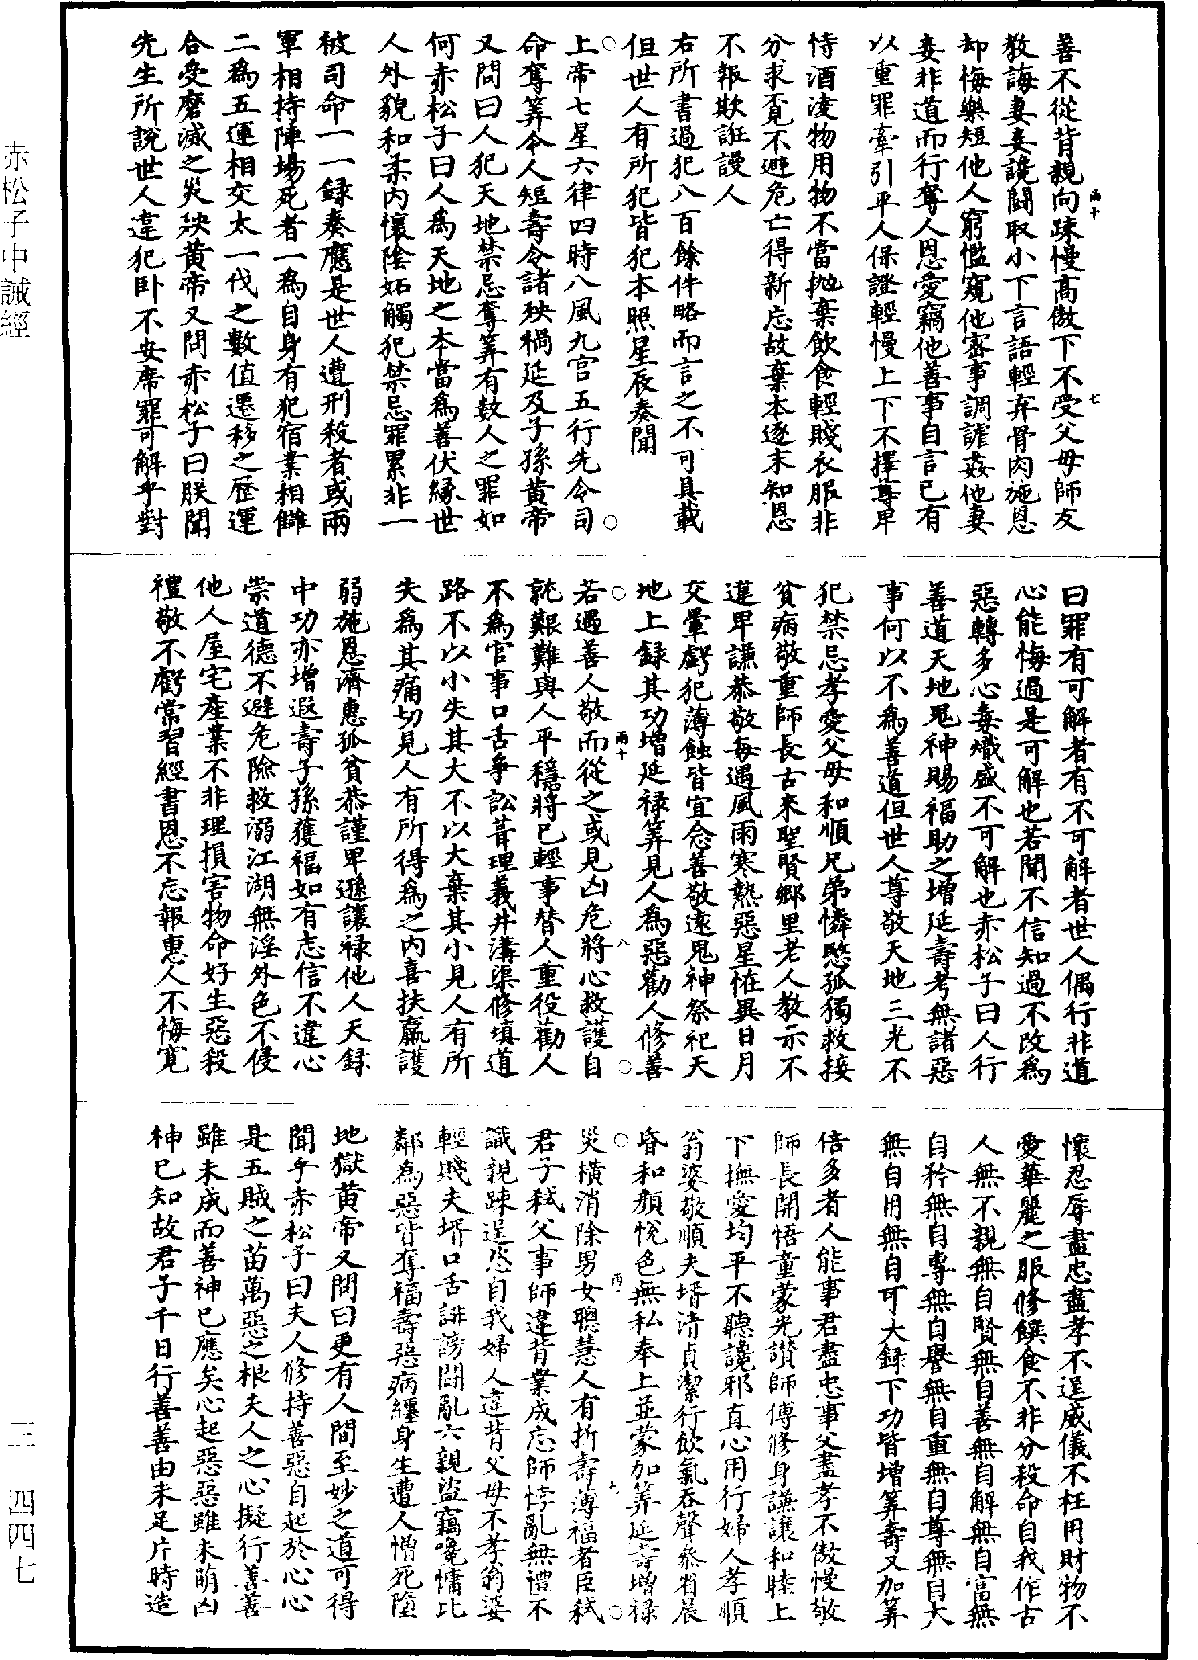 善不從背親向疎慢高傲下不受父母師友
教誨妻妾競鬬取小下言語輕弃骨肉施恩
却悔樂短他人窮懢窺他密事調謔姦他妻
妾非道而行奪人恩愛竊他善事自言已有
以重罪牽引平人保證輕慢上下不擇尊卑
恃酒凌物用物不當抛棄飲食輕賤衣服非
分求覓不避危亡得新忘故棄本逐末知恩
不報欺誑謾人
右所書過犯八百餘件略而言之不可具載
但世人有所犯皆犯本照星辰奏聞
上帝七星六律四時八風九宫五行先令司
命奪筭令人短壽令諸殃禍延及子孫黄帝
又問曰人犯天地禁忌奪筭有數人之罪如
何赤松子曰人為天地之本當為善伏縁世
人外貌和柔内懷陰妬觸犯禁忌罪累非一
被司命一一録奏應是世人遭刑殺者或兩
軍相持陣場死者一為自身有犯宿業相讎
二為五運相交太一伐之數值遷移之歷運
合受磨滅之災殃黄帝又問赤松子曰朕聞
先生所説世人違犯卧不安席罪可解乎對
曰罪有可解者有不可解者世人偶行非道
心能悔過是可解也若聞不信知過不改為
惡轉多心毒熾盛不可解也赤松子曰人行
善道天地鬼神賜福助之增延壽考無諸惡
事何以不為善道但世人尊敬天地三光不
犯禁忌孝愛父母和順兄弟憐愍孤獨救接
貧病敬重師長古來聖賢鄉里老人教示不
違卑謙恭敬每遇風雨寒熱惡星恠異日月
交暈虧犯薄蝕皆宜念善敬遠鬼神祭祀天
地上録其功增延禄筭見人為惡勸人修善
若遇善人敬而從之或見凶危將心救護自
就艱難與人平穩將已輕事替人重役勸人
不為官事口舌爭訟葺理義井溝渠修填道
路不以小失其大不以大棄其小見人有所
失為其痛切見人有所得為之内喜扶羸護
弱施恩濟惠孤貧恭謹卑遜讓禄他人天録
中功亦增遐壽子孫獲福如有志信不違心
崇道德不避危險救溺江湖無淫外色不侵
他人屋宅産業不非理損害物命好生惡殺
禮敬不虧常習經書恩不忘報惠人不悔寛
懷忍辱盡忠盡孝不逞威儀不枉用財物不
愛華麗之服修饌食不非分殺命自我作古
人無不親無自賢無自善無自解無自富無
自矜無自專無自譽無自重無自尊無自大
無自用無自可大録下功皆增筭壽又加筭
倍多者人能事君盡忠事父盡孝不傲慢敬
師長開悟童蒙光讃師傅修身謙讓和睦上
下撫愛均平不聽讒邪直心用行婦人孝順
翁婆敬順夫壻清貞潔行飲氣吞聲叅省晨
昏和顔悅色無私奉上並蒙加筭延壽增禄
災橫消除男女聰慧人有折壽薄福者臣弑
君子弑父事師違背業成忘師悖亂無禮不
識親踈逞恣自我婦人違背父母不孝翁婆
輕賤夫壻口舌誹謗鬬亂六親盜竊唵慵比
鄰為惡皆奪福壽惡病纏身生遭人憎死墮
地獄黄帝又問曰更有人間至妙之道可得
聞乎赤松子曰夫人修持善惡自起於心心
是五賊之苗萬惡之根夫人之心擬行善善
雖未成而善神已應矣心起惡惡雖未萌凶
神已知故君子千日行善善由未足片時造
赤松子中誡經
三 四四七